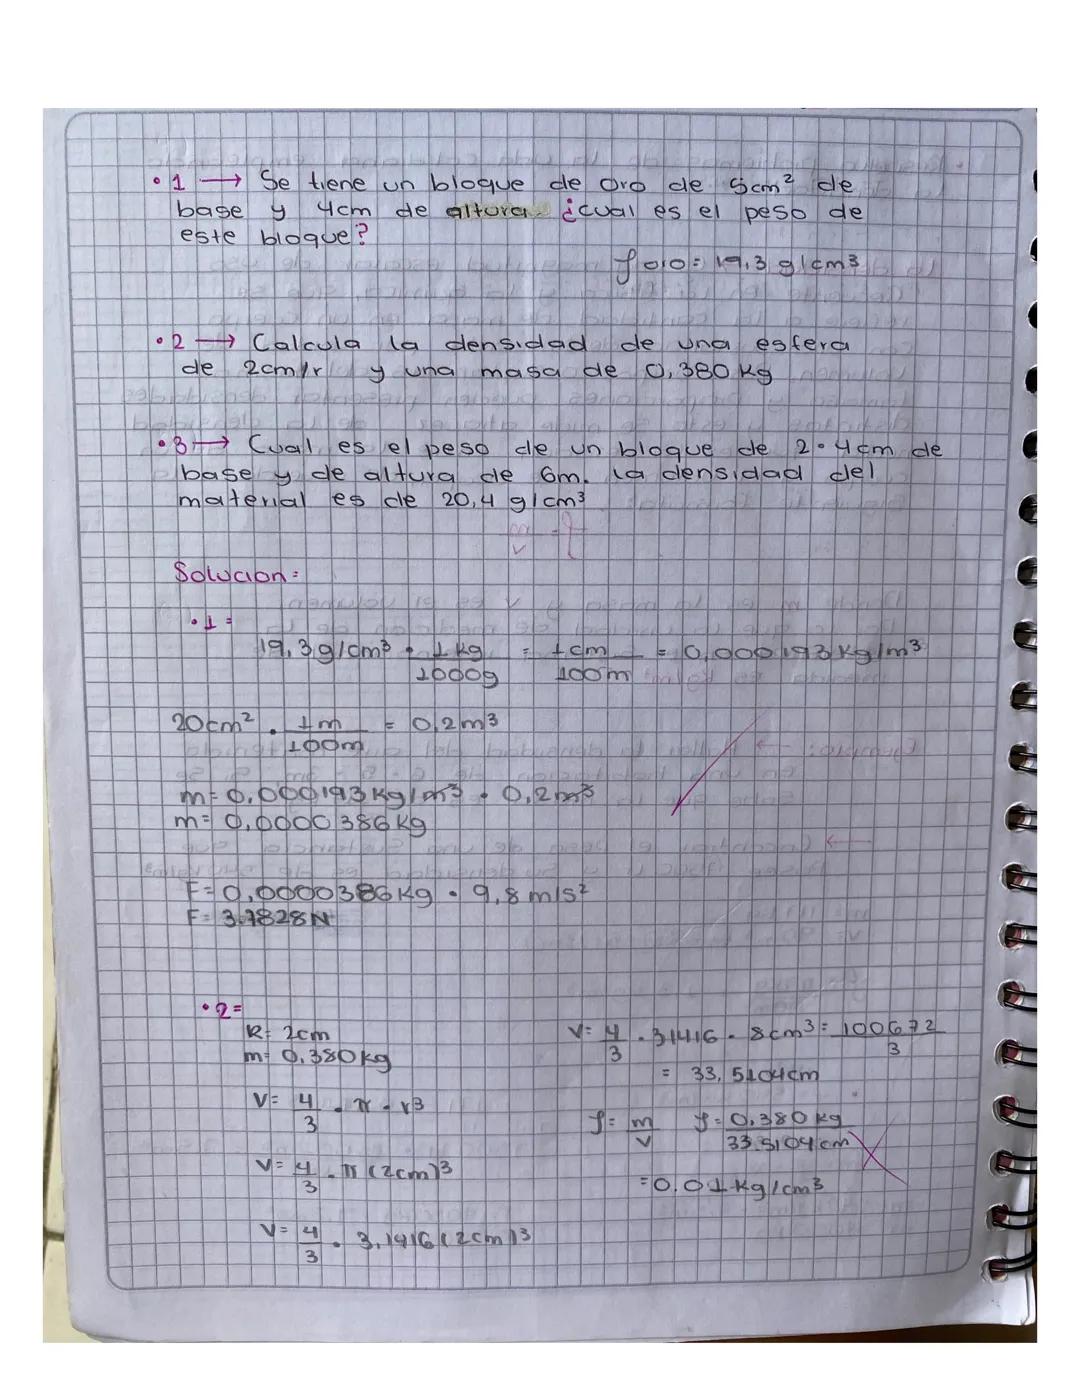 • 1 → Se tiene un bloque de oro de 5cm² de
base y 4cm de altura. ¿cual es el peso de
este bloque?
ρ oro = 19,3 g/cm³
• 2 → Calcula la densidad de una esfera
de 2cm/r y una masa de 0,380 Kg
• 3 → Cual es el peso de un bloque de 2 • 4cm de
base y de altura de 6m. la densidad del
material es de 20,4 g/cm³
Solucion =
• 1 =
19,3g/cm³ • 1 kg / 1000g = 1cm / 100m = 0,000193 kg/m³
20cm² • 1m / 100m = 0,2m³
m= 0,000193 kg/m³ • 0,2m³
m= 0,0000386 kg
F= 0,0000386 kg • 9,8 m/s²
F= 3.7828 N
• 2 =
R= 2cm
m= 0,380 kg
V= 4/3 • π • r³
V= 4/3 • π (2cm)³
V= 4/3 • 3,1416 (2cm)³
V= 4/3 • 31416 • 8cm³ = 100672/3
= 33,5104cm
ρ= m/v ρ= 0,380 kg / 33.5104 cm
= 0.01 kg/cm³